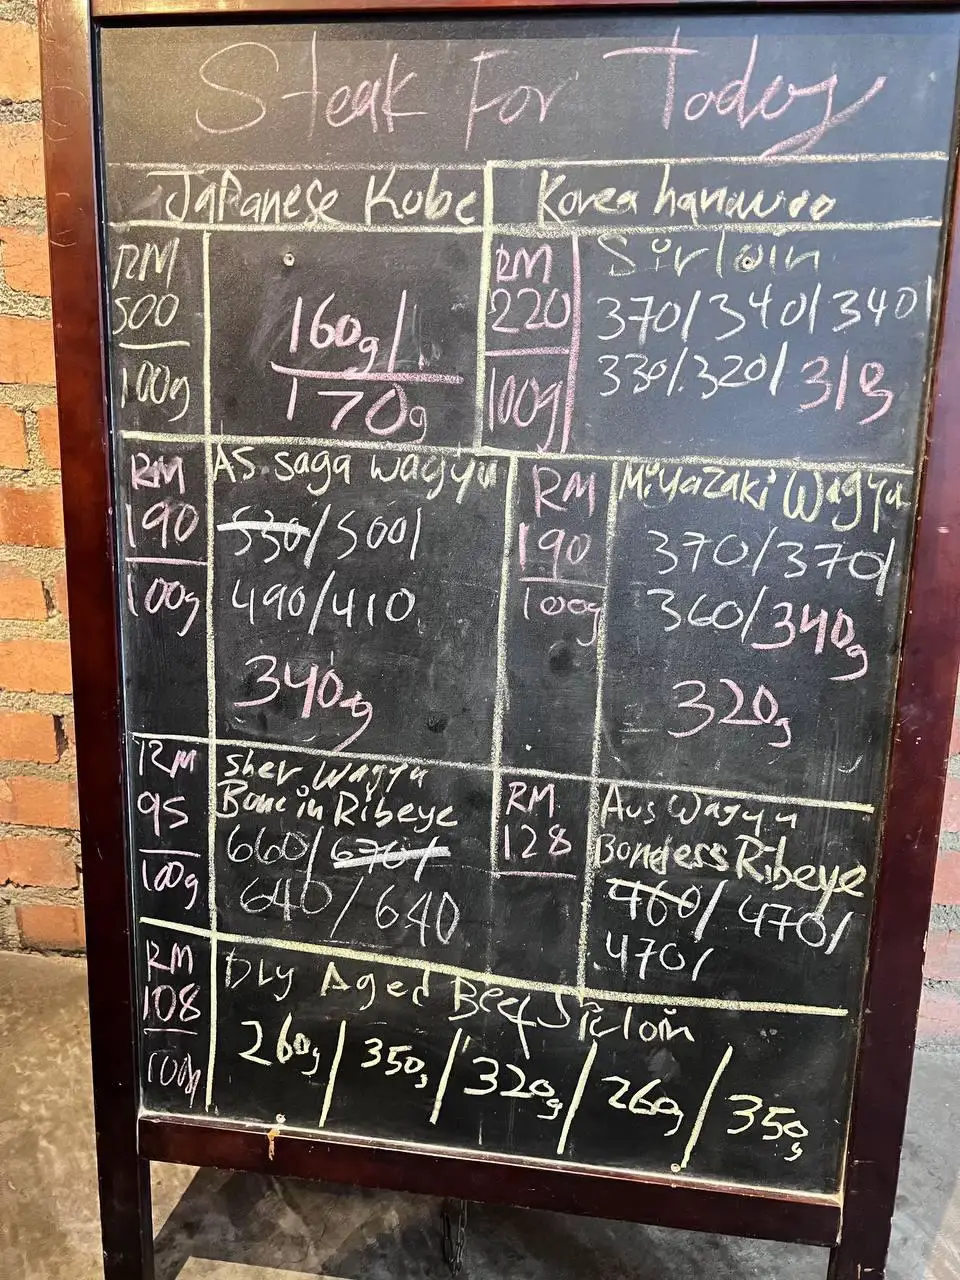 Steak For Today
Japanese Kobe
RM
500
100g
160g/
170g
Korea hanwoo
RM
220
100g
Sirloin
370/340/340
330/320/
RM
190
100g
A5 saga wagyu
530/500/
490/410
340g
RM
190
100g
Miyazaki Wagyu
370/370/
360/340g
320g
RM
95
100g
sher Wagyu
Bone in Ribeye
660/670/
640/640
RM
128
Aus Wagyu
Boneless Ribeye
460/470/
470/
RM
108
100g
Dry Aged Beef Sirloin
260g/350g/320g/260g/350g